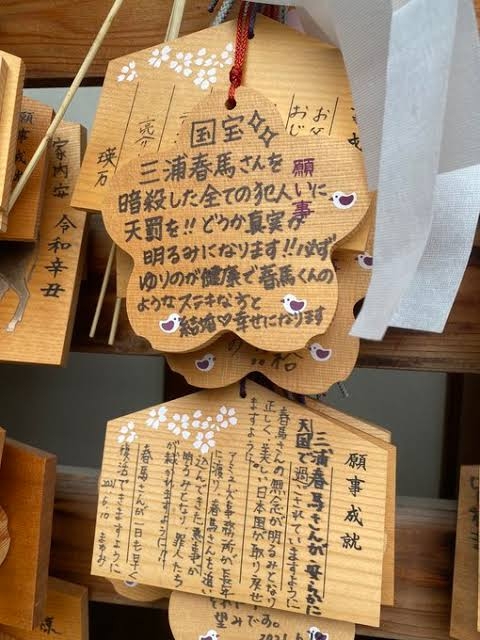 国宝
三浦春馬さんを
暗殺した全ての犯人に
天罰を!!どうか真実が
明るみになります!!必ず
ゆりのが健康で春馬くんの
ようなステキな方と
結婚♡幸せになります
願い事
願事成就
三浦春馬さんが安らかに
天国で過ごされていますように
春馬さんの無念が明るみとなり
正しく、美しい日本国が取り戻せ
ますように
アミューズ事務所が長年
に渡り春馬さんを追い
込んできた悪事が
明るみとなり罪人たち
が裁かれますように
春馬さんが一日も早く
復活できますように
2021.6.10
願事
家内安
令和辛丑
瑛万